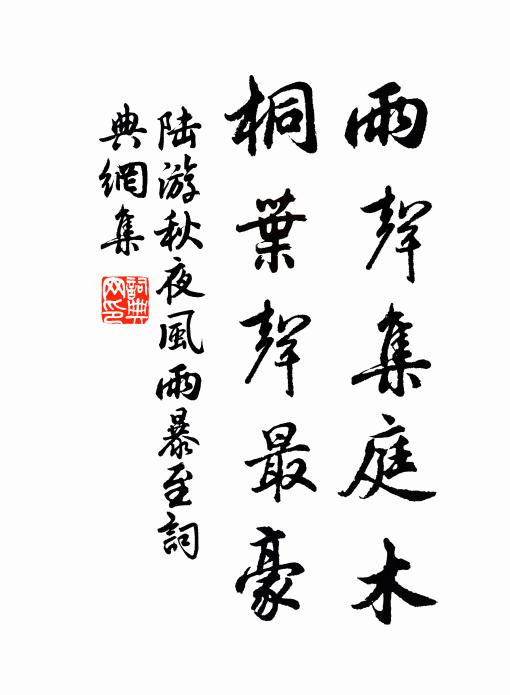 雨聲集庭木
桐葉聲最豪
陸游秋夜風雨暴至詞
典網集
詞典网印